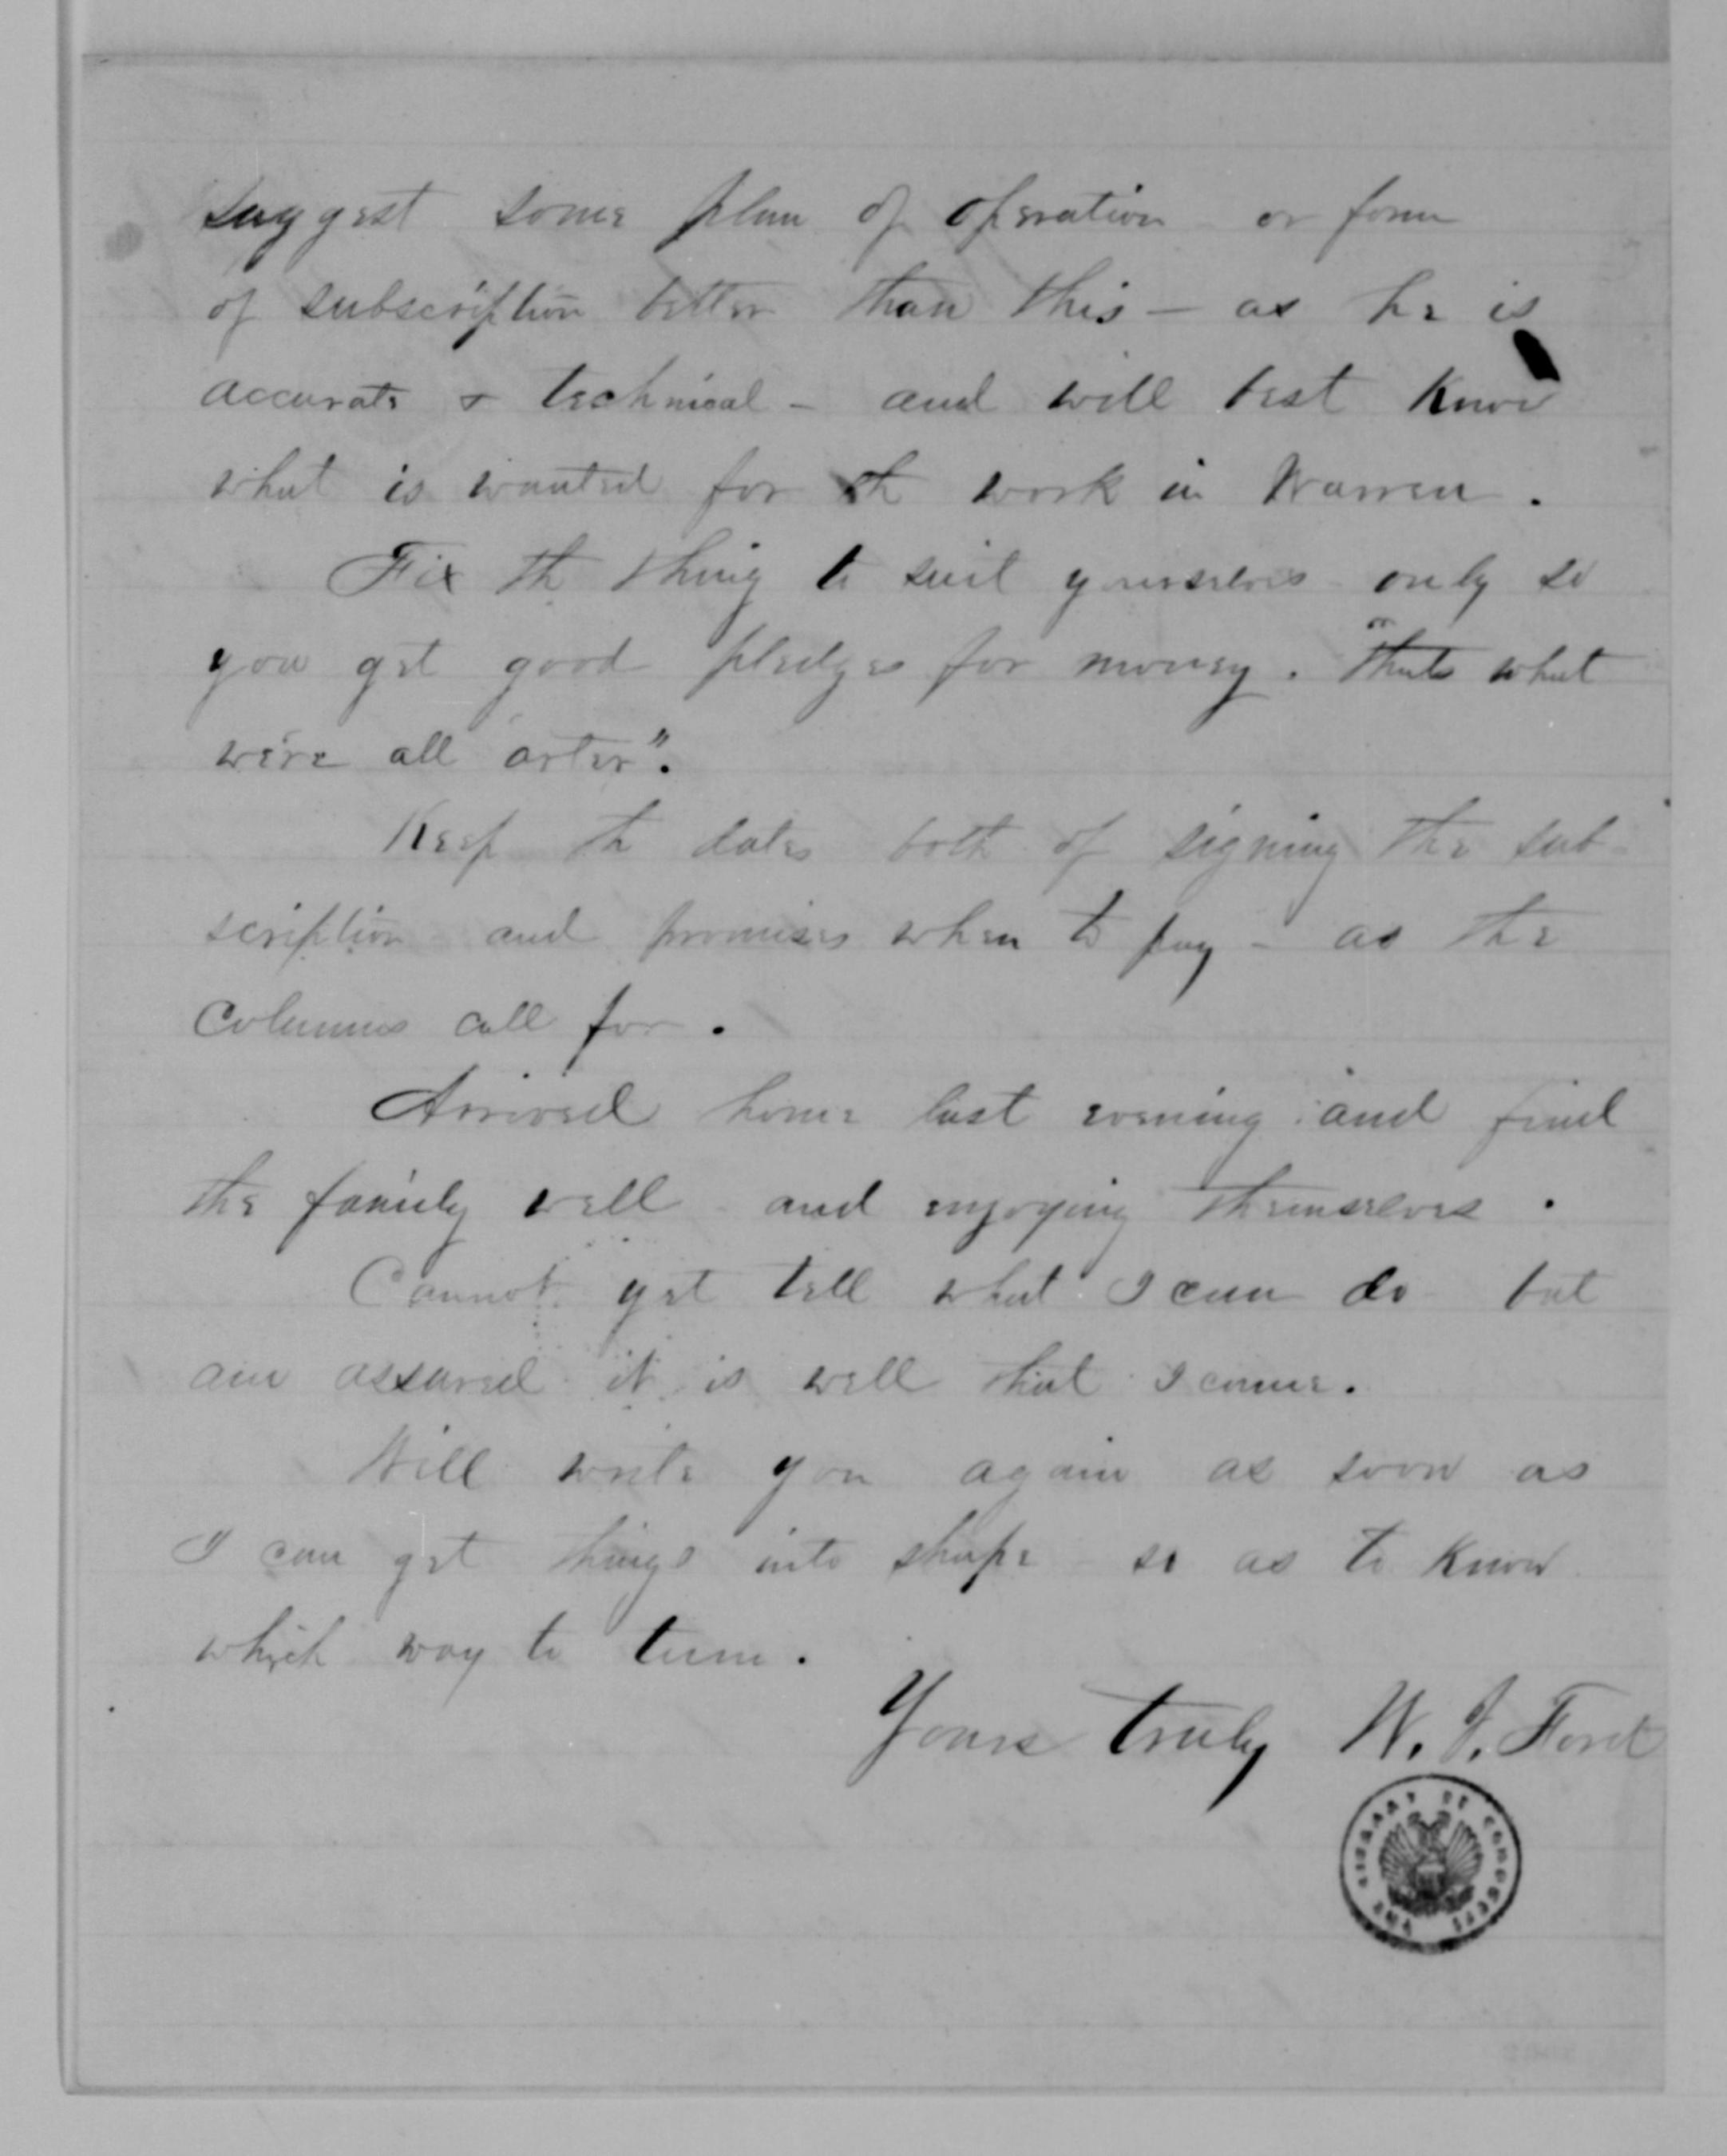 suggest some plan of operation or form
of subscription better than this — as he is
accurate & technical — and will best know
what is wanted for th work in Warren.
Fix th thing to suit yourselves only so
you get good pledges for money. "Thats what
we're all arter".
Keep th dates both of signing the sub-
scription and promises when to pay — as the
columns call for.
Arrived home last evening and find
the family well and enjoying themselves.
Cannot yet tell what I can do but
am assured it is well that I come.
Will write you again as soon as
I can get things into shape so as to know
which way to turn.
Yours truly W. J. Ford
LIBRARY OF CONGRESS